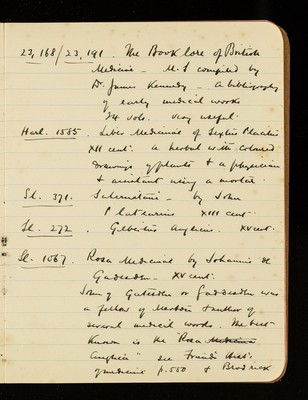 23,168/23,191. The Book lore of British
Medicine - M.S compiled by
Dr. James Kennedy - A bibliography
of early medical works
24 vols. Very useful.
Harl. 1585. Liber Medicinae of Sextus Placitus
XII cent. A herbal with coloured
drawings of plants & a physician
& assistant using a mortar.
Sl. 371. Salernitani - by John
Platearius XIII cent.
Sl. 272. Gilbertus Anglicus. XV cent.
Sl. 1067. Rosa Medicinae by Johannis de
Gadesden - XV cent.
John of Gatesden or Gaddesden was
a fellow of Merton & author of
several medical works. The best
known is the "Rosa Medicinae
Anglica" see Friend's Hist.
of medicine p. 550 &